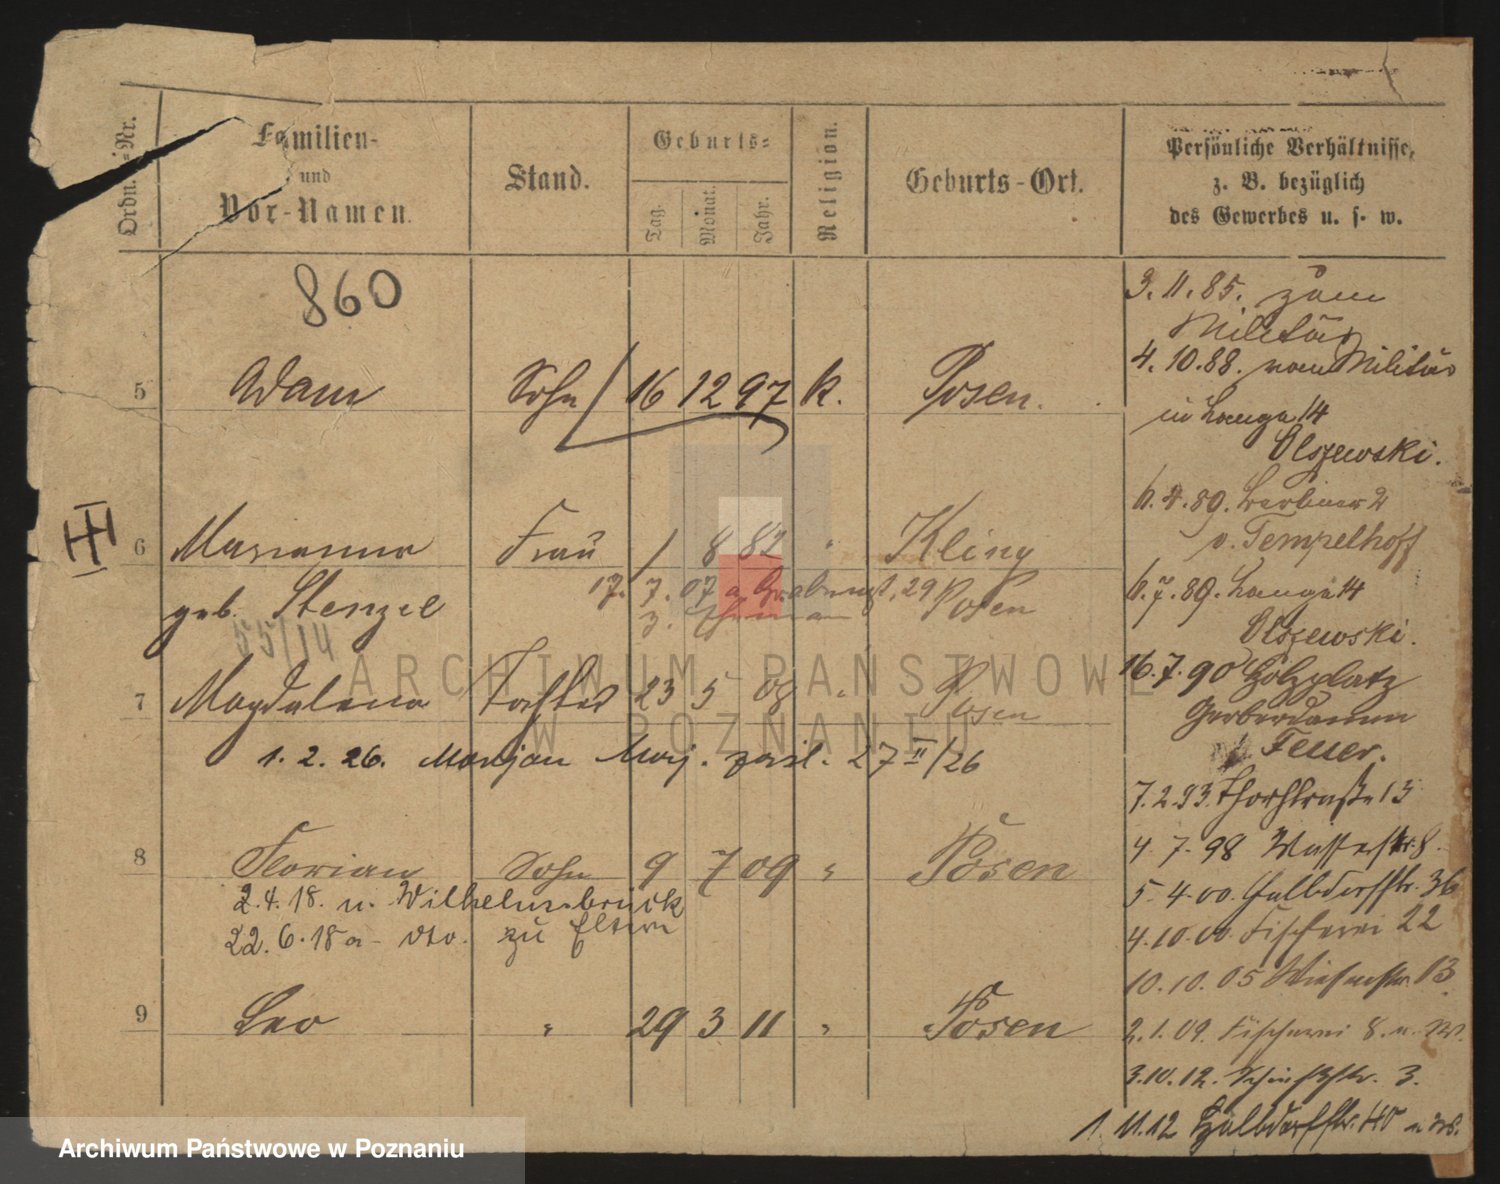 Ordn.-Nr.
Familien-
und
Vor-Namen.
Stand.
Geburts-
Tag.
Monat.
Jahr.
Religion.
Geburts-Ort.
Persönliche Verhältnisse,
z. B. bezüglich
des Gewerbes u. s. w.
860
5 Adam Sohn 16 12 97 k. Posen.
III
6 Marianna Frau 1 8 82 " Kling
geb. Stenzel 17. 7. 07 a. 29 Posen
55/14
7 Magdalena Tochter 23 5 08 " Posen
1. 2. 26. Marijan 27 II/26
8 Florian Sohn 9 7 09 " Posen
2.4.18. n. Wilhelmsbrück
22.6.18 a. dto. zu Eltern
9 Leo " 29 3 11 " Posen
3.11.85. zum
Militär
4.10.88. vom Militär
in Lange 14
Olszewski.
6.4.89. Berliner 2
v. Tempelhoff
6.7.89. Lange 14
Olszewski.
16.7.90 Holzplatz
Gerberdamm
Feuer.
7.2.93. Thorstraße 13
4.7.98 Wasserstr. 8.
5.4.00. Halbdorfstr. 36
4.10.00. Fischerei 22
10.10.05 Wiesenstr. 13
2.1.09. Fischerei 8.
3.10.12. Schießstr. 3.
1.11.12 Halbdorfstr. 40
ARCHIWUM PAŃSTWOWE
W POZNANIU
Archiwum Państwowe w Poznaniu